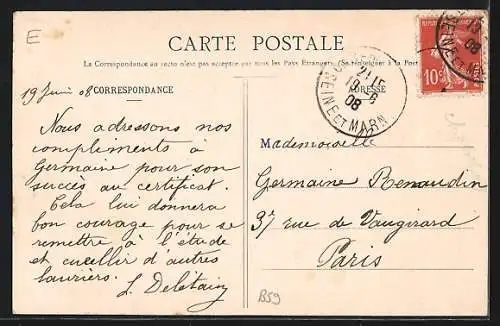 E
CARTE POSTALE
La Correspondance au recto n'est pas acceptée par tous les Pays Étrangers. (Se renseigner à la Poste
19 Juin 08 CORRESPONDANCE
ADRESSE
21 15
19 -6
08
SEINE ET MARN
10
08
SEINE ET
Nous adressons nos
complements à
Germaine pour son
succès au certificat.
Cela lui donnera
bon courage pour se
remettre à l'étude
et cueillir d'autres
lauriers.
Mademoiselle
Germaine Renaudin
37 rue de Vaugirard
Paris
B59